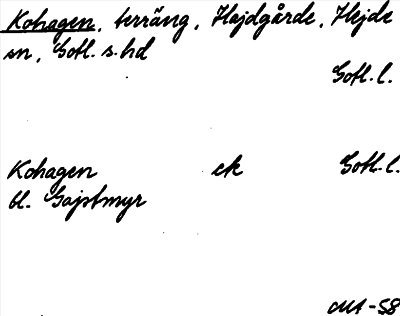 Kohagen, terräng, Hajdgårde, Hejde
sn, Gotl. s. hd
Gotl. l.
Kohagen ek Gotl. l.
bl. Gajstmyr
MA -58